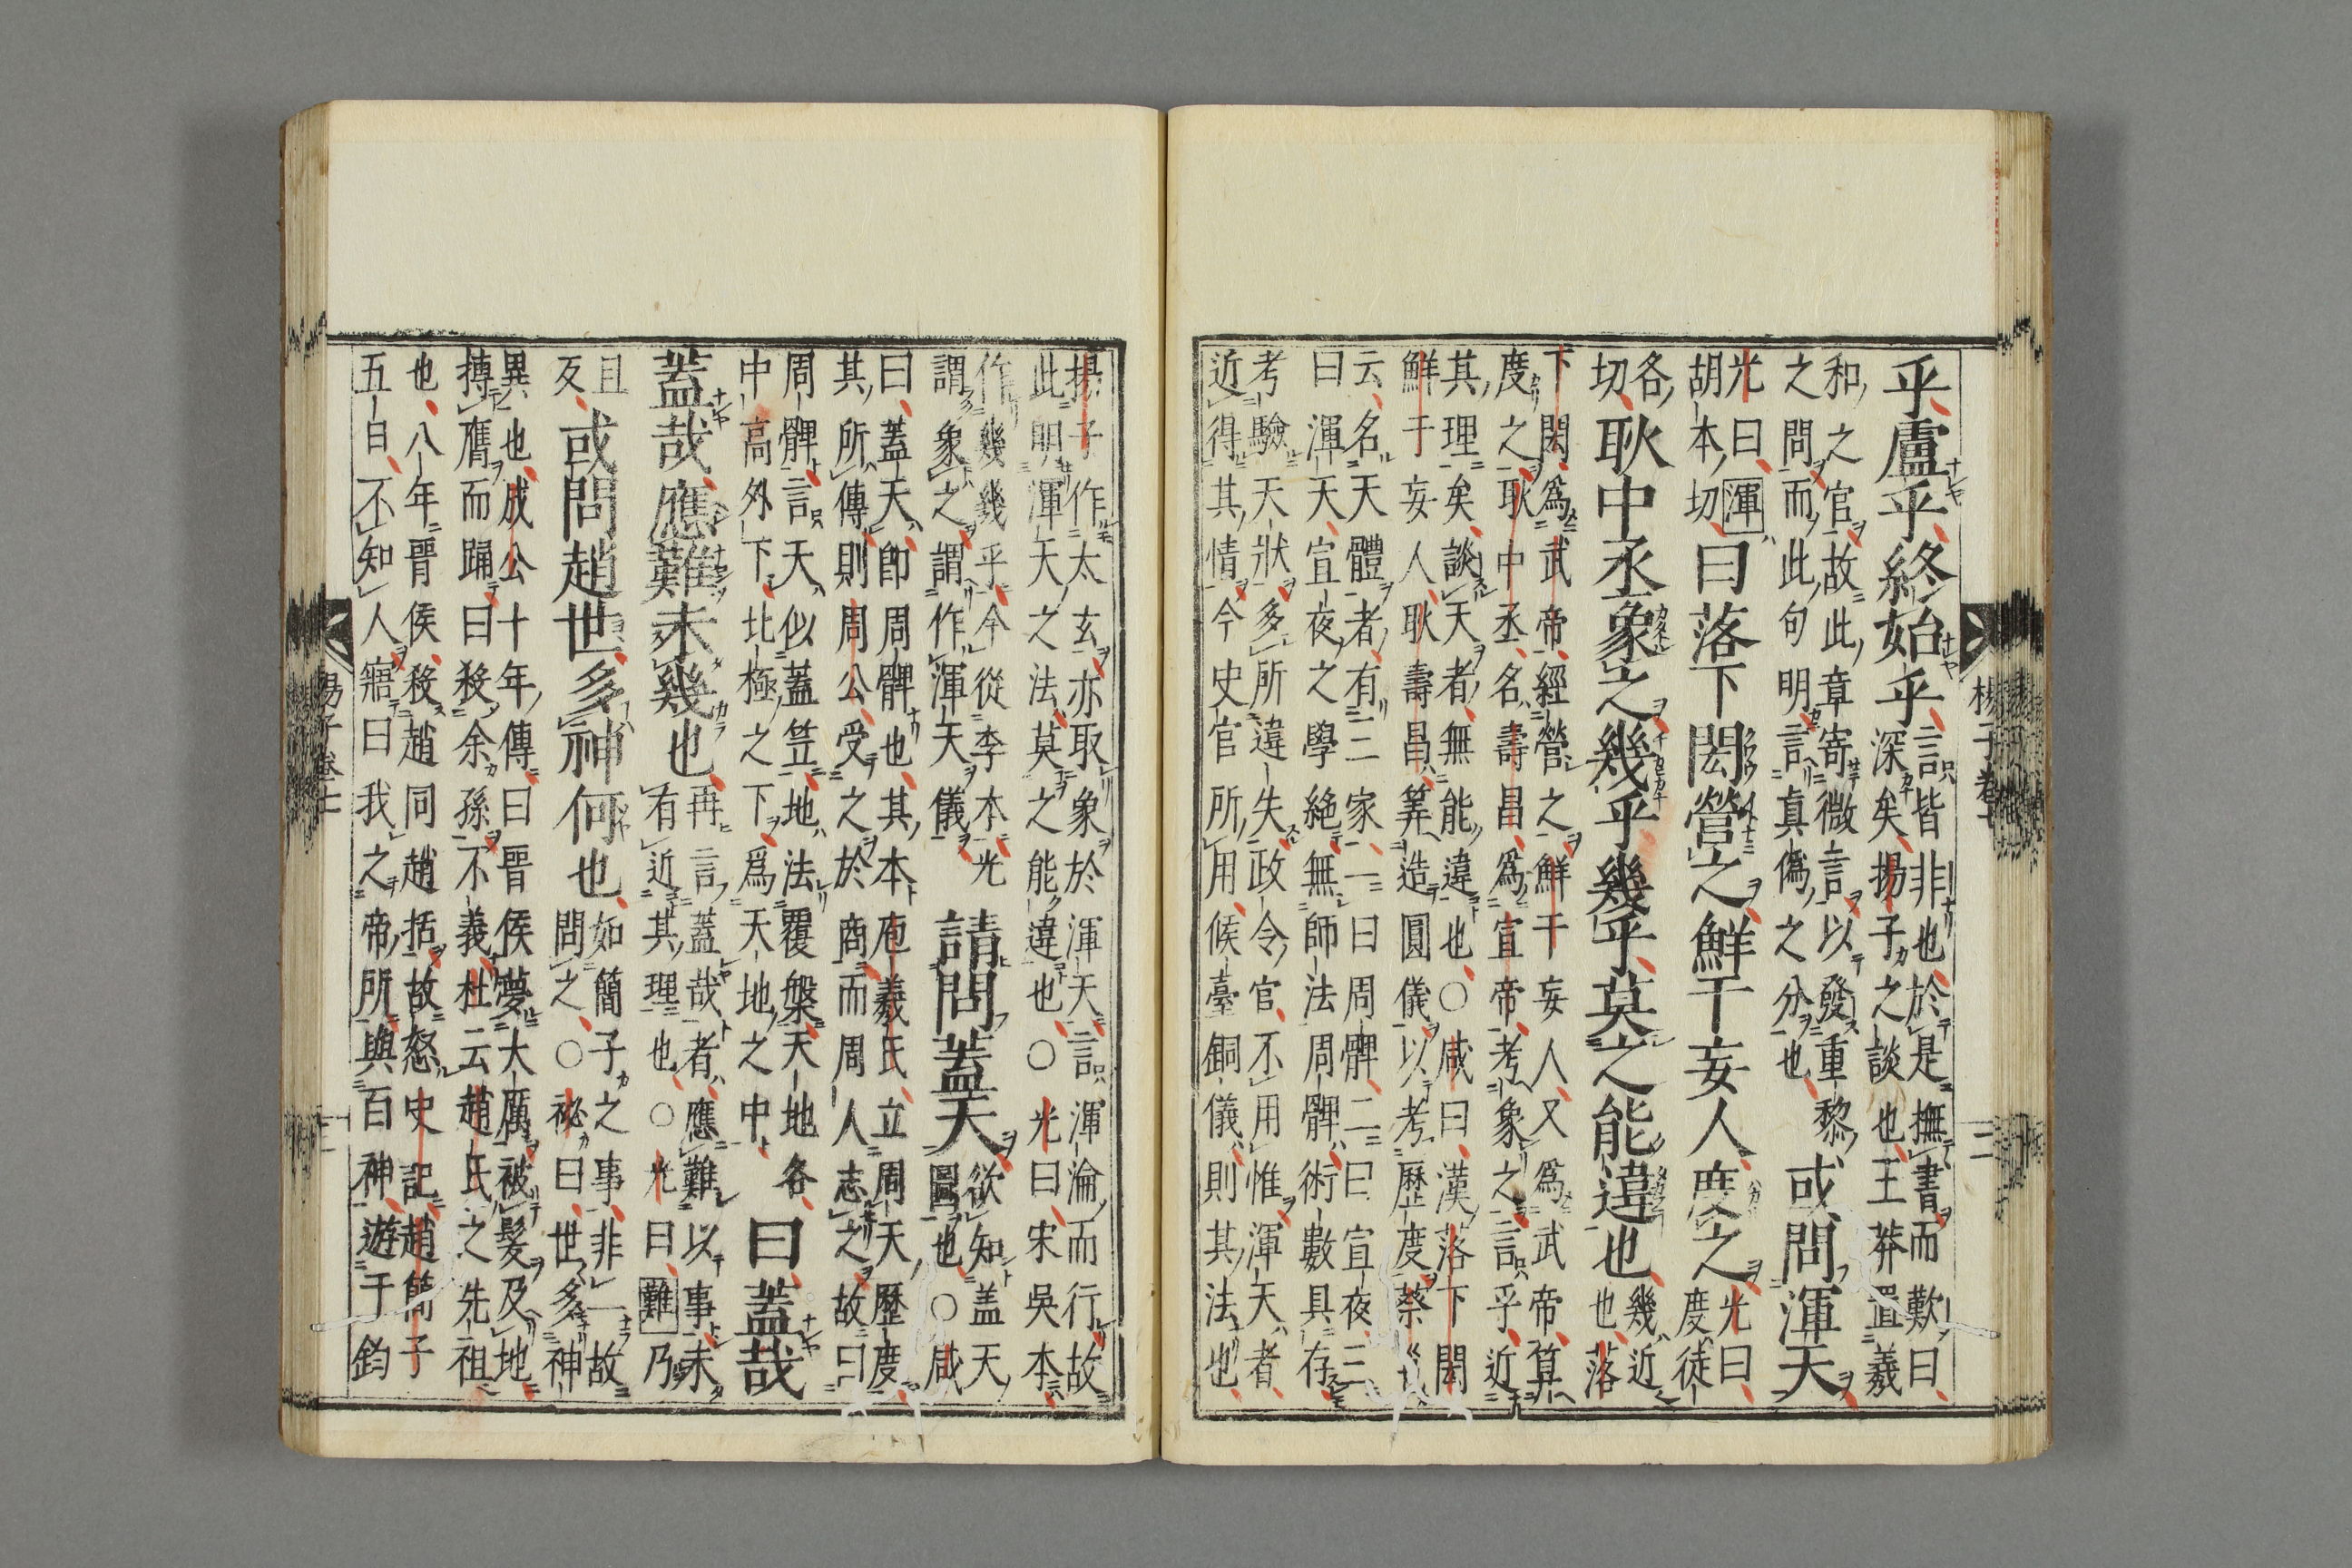 乎盧乎終始乎
言皆非也於是撫書而歎曰
深矣揚子之談也王莽置羲
和之官故此章寄微言以發重黎
之問而此句明言真偽之分也
或問渾天
光曰渾
胡本切
曰落下閎營之鮮于妄人度之
光曰
度徒
各
切
耿中丞象之幾乎幾乎莫之能違也
幾近
也落
下閎爲武帝經營之鮮于妄人又爲武帝算
度之耿中丞名壽昌爲宣帝考象之言乎近
其理矣談天者無能違也○咸曰漢落下閎
鮮于妄人耿壽昌筭造圓儀以考歷度蔡邕
云名天體者有三家一曰周髀二曰宣夜三
曰渾天宣夜之學絶無師法周髀術數具存
考驗天狀多所違失政令官不用惟渾天者
近得其情今史官所用候臺銅儀則其法也
揚子作太玄亦取象於渾天言渾淪而行故
此明渾天之法莫之能違也○光曰宋吳本
作幾幾乎今從李本光
謂象之謂作渾天儀
請問蓋天
欲知盖天
圖也○咸
曰蓋天即周髀也其本庖羲氏立周天歷度
其所傳則周公受之於商而周人志之故曰
周髀言天似蓋笠地法覆槃天地各
中高外下北極之下爲天地之中
曰蓋哉
蓋哉應難未幾也
再言蓋哉者應難以事未
有近其理也○光曰難乃
且
反
或問趙世多神何也
如簡子之事非一故
問之○祕曰世多神
異也成公十年傳曰晉侯夢大厲被髮及地
搏膺而踊曰殺余孫不義杜云趙氏之先祖
也八年晉侯殺趙同趙括故怒史記趙簡子
五日不知人寤曰我之帝所與百神遊于鈞